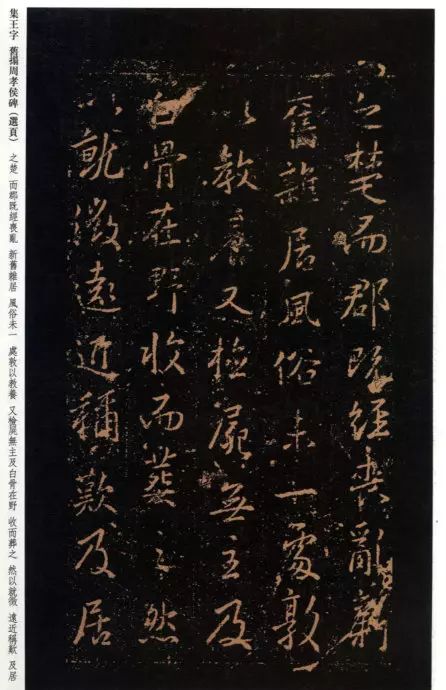 之楚而郡既經喪亂新
舊雜居風俗未一處敦
以教養又檢屍無主及
白骨在野收而葬之然
以就徵遠近稱歎及居
集王字 舊搨周孝侯碑（選頁） 之楚 而郡既經喪亂 新舊雜居 風俗未一 處敦以教養 又檢屍無主及白骨在野 收而葬之 然以就徵 遠近稱歎 及居